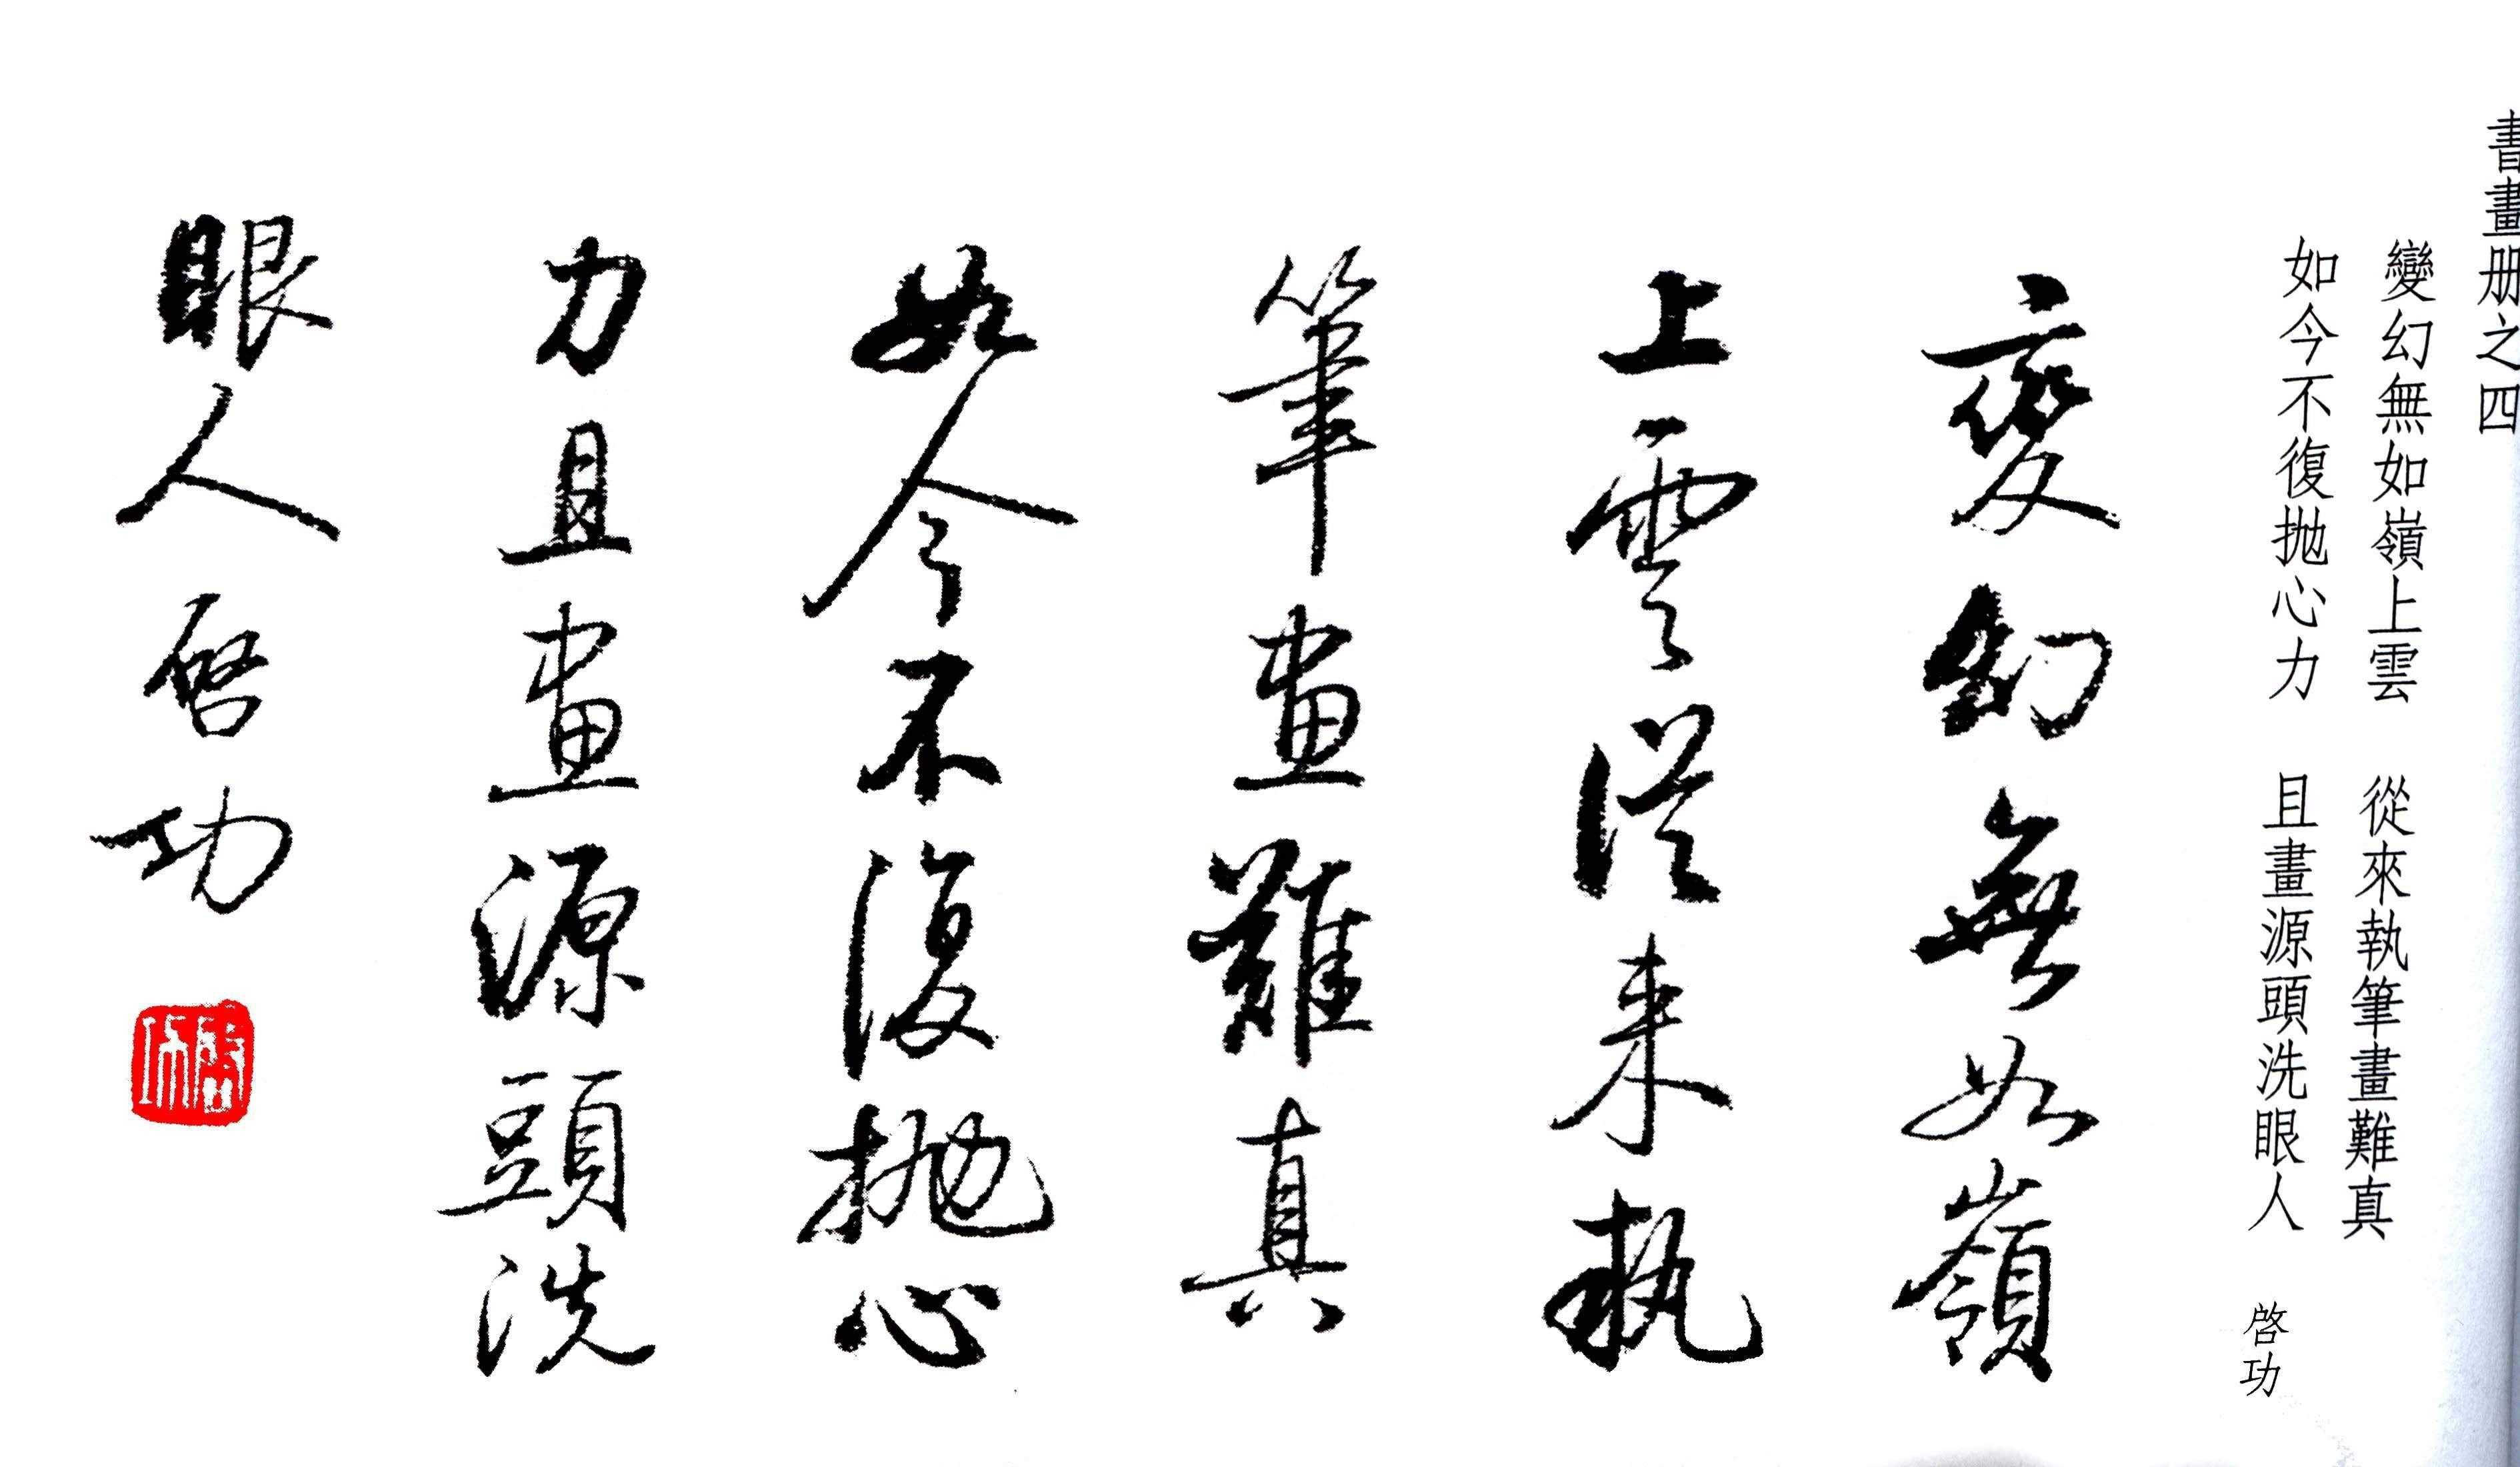 書畫册之四
變幻無如嶺上雲 從來執筆畫難真
如今不復拋心力 且畫源頭洗眼人
啓功
变幻無如嶺
上雲從来執
筆畫難真
如今不復拋心
力且畫源頭洗
眼人 啓功
啓功